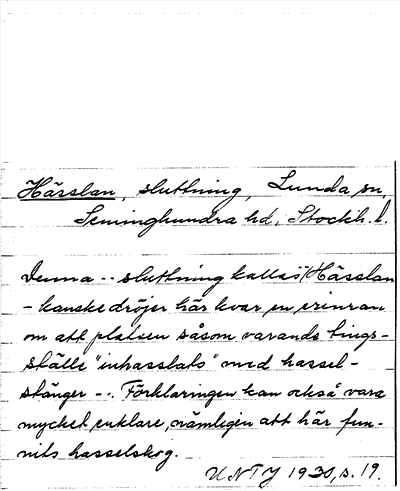 Hässlan, sluttning, Lunda sn,
Seminghundra hd, Stockh. l.
Denna -- sluttning kallas Hässlan
- kanske dröjer här kvar en erinran
om att platsen såsom varande tings-
ställe "inhasslats" med hassel-
stänger -. Förklaringen kan också vara
mycket enklare, nämligen att här fun-
nits hasselskog.
UNTJ 1930, s. 19.